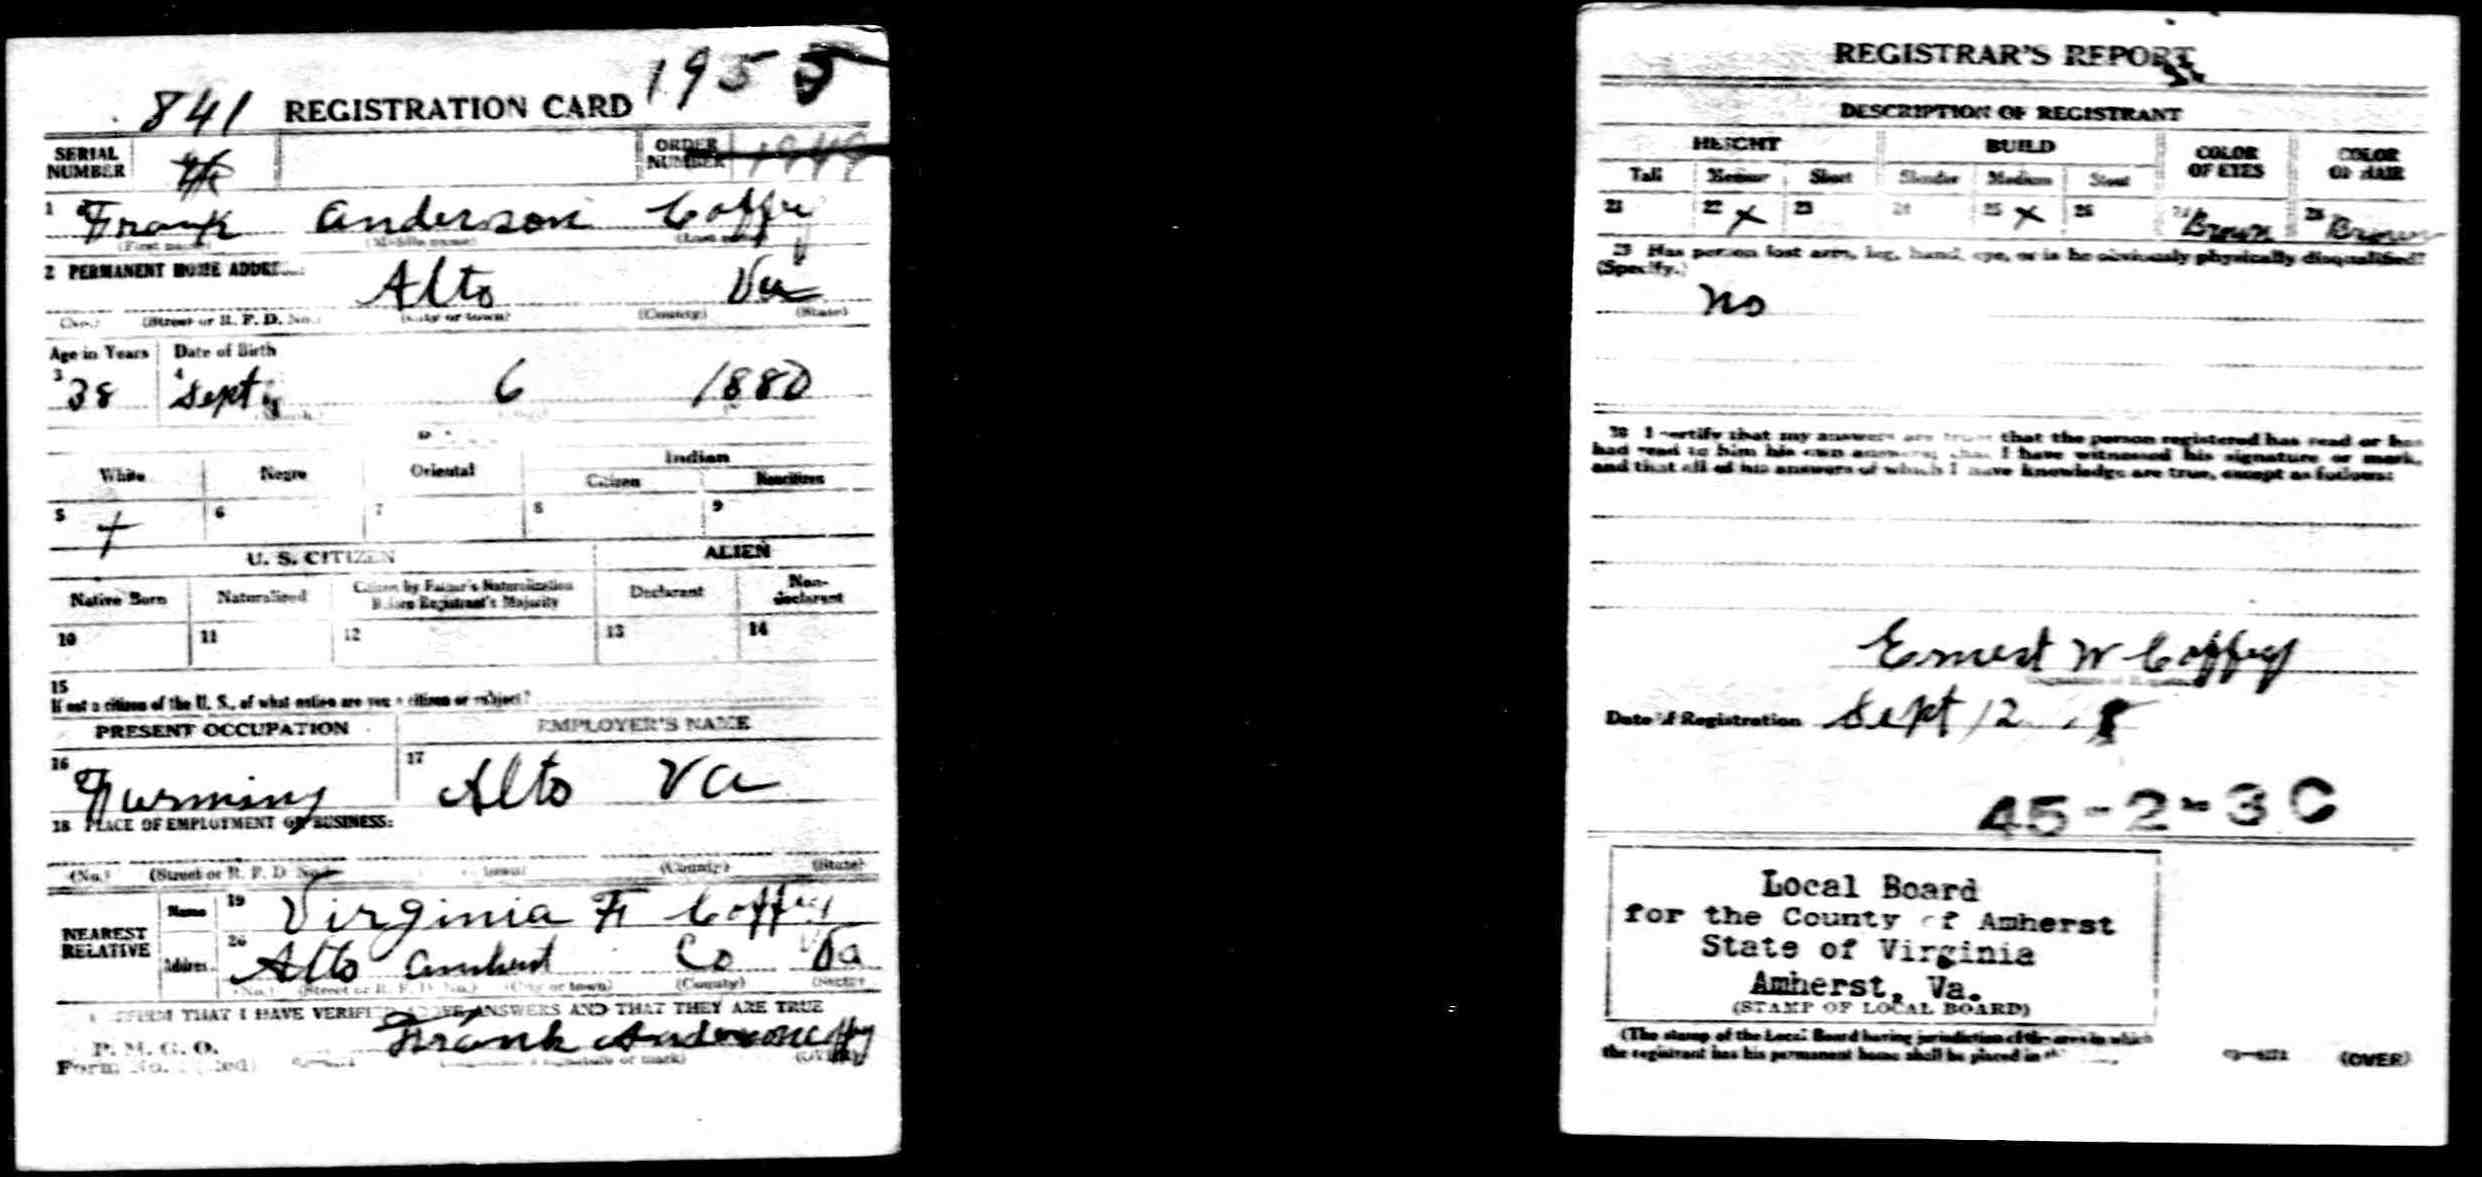 841 REGISTRATION CARD 1955
SERIAL NUMBER
ORDER NUMBER 1949
1 Frank Anderson Coffey
(First name) (Middle name) (Last name)
2 PERMANENT HOME ADDRESS:
Alto Va
(No.) (Street or R. F. D. No.) (City or town) (County) (State)
Age in Years Date of Birth
3 38 4 Sept 6 1880
White Negro Oriental Indian
Citizen Noncitizen
5 + 6 7 8 9
U. S. CITIZEN ALIEN
Native Born Naturalized Citizen by Father's Naturalization Before Registrant's Majority Declarant Non-declarant
10 11 12 13 14
15
If not a citizen of the U. S., of what nation are you a citizen or subject?
PRESENT OCCUPATION EMPLOYER'S NAME
16 Furming 17 Alto Va
18 PLACE OF EMPLOYMENT OR BUSINESS:
(No.) (Street or R. F. D. No.) (County) (State)
NEAREST RELATIVE
Name 19 Virginia F Coffey
Address 20 Alto Amherst Co Va
(No.) (Street or R. F. D. No.) (City or town) (County) (State)
I AFFIRM THAT I HAVE VERIFIED ABOVE ANSWERS AND THAT THEY ARE TRUE
P. M. G. O.
Form No. (Red) Frank Anderson Coffey (OVER)
REGISTRAR'S REPORT
DESCRIPTION OF REGISTRANT
HEIGHT BUILD COLOR OF EYES COLOR OF HAIR
Tall Medium Short Slender Medium Stout
21 22 x 23 24 25 x 26 27 Brown 28 Brown
29 Has person lost arm, leg, hand, eye, or is he obviously physically disqualified?
(Specify.)
no
30 I certify that my answers are true; that the person registered has read or has
had read to him his own answers; that I have witnessed his signature or mark,
and that all of his answers of which I have knowledge are true, except as follows:
Ernest W Coffey
Date of Registration Sept 12 8
45-2-3 C
Local Board
for the County of Amherst
State of Virginia
Amherst, Va.
(STAMP OF LOCAL BOARD)
(The stamp of the Local Board having jurisdiction of the area in which
the registrant has his permanent home shall be placed in
(OVER)